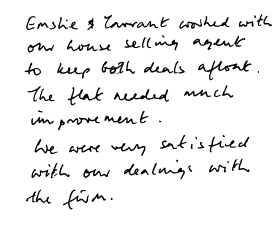 Emslie & Tarrant worked with
our house selling agent
to keep both deals afloat.
The flat needed much
improvement.
We were very satisfied
with our dealings with
the firm.